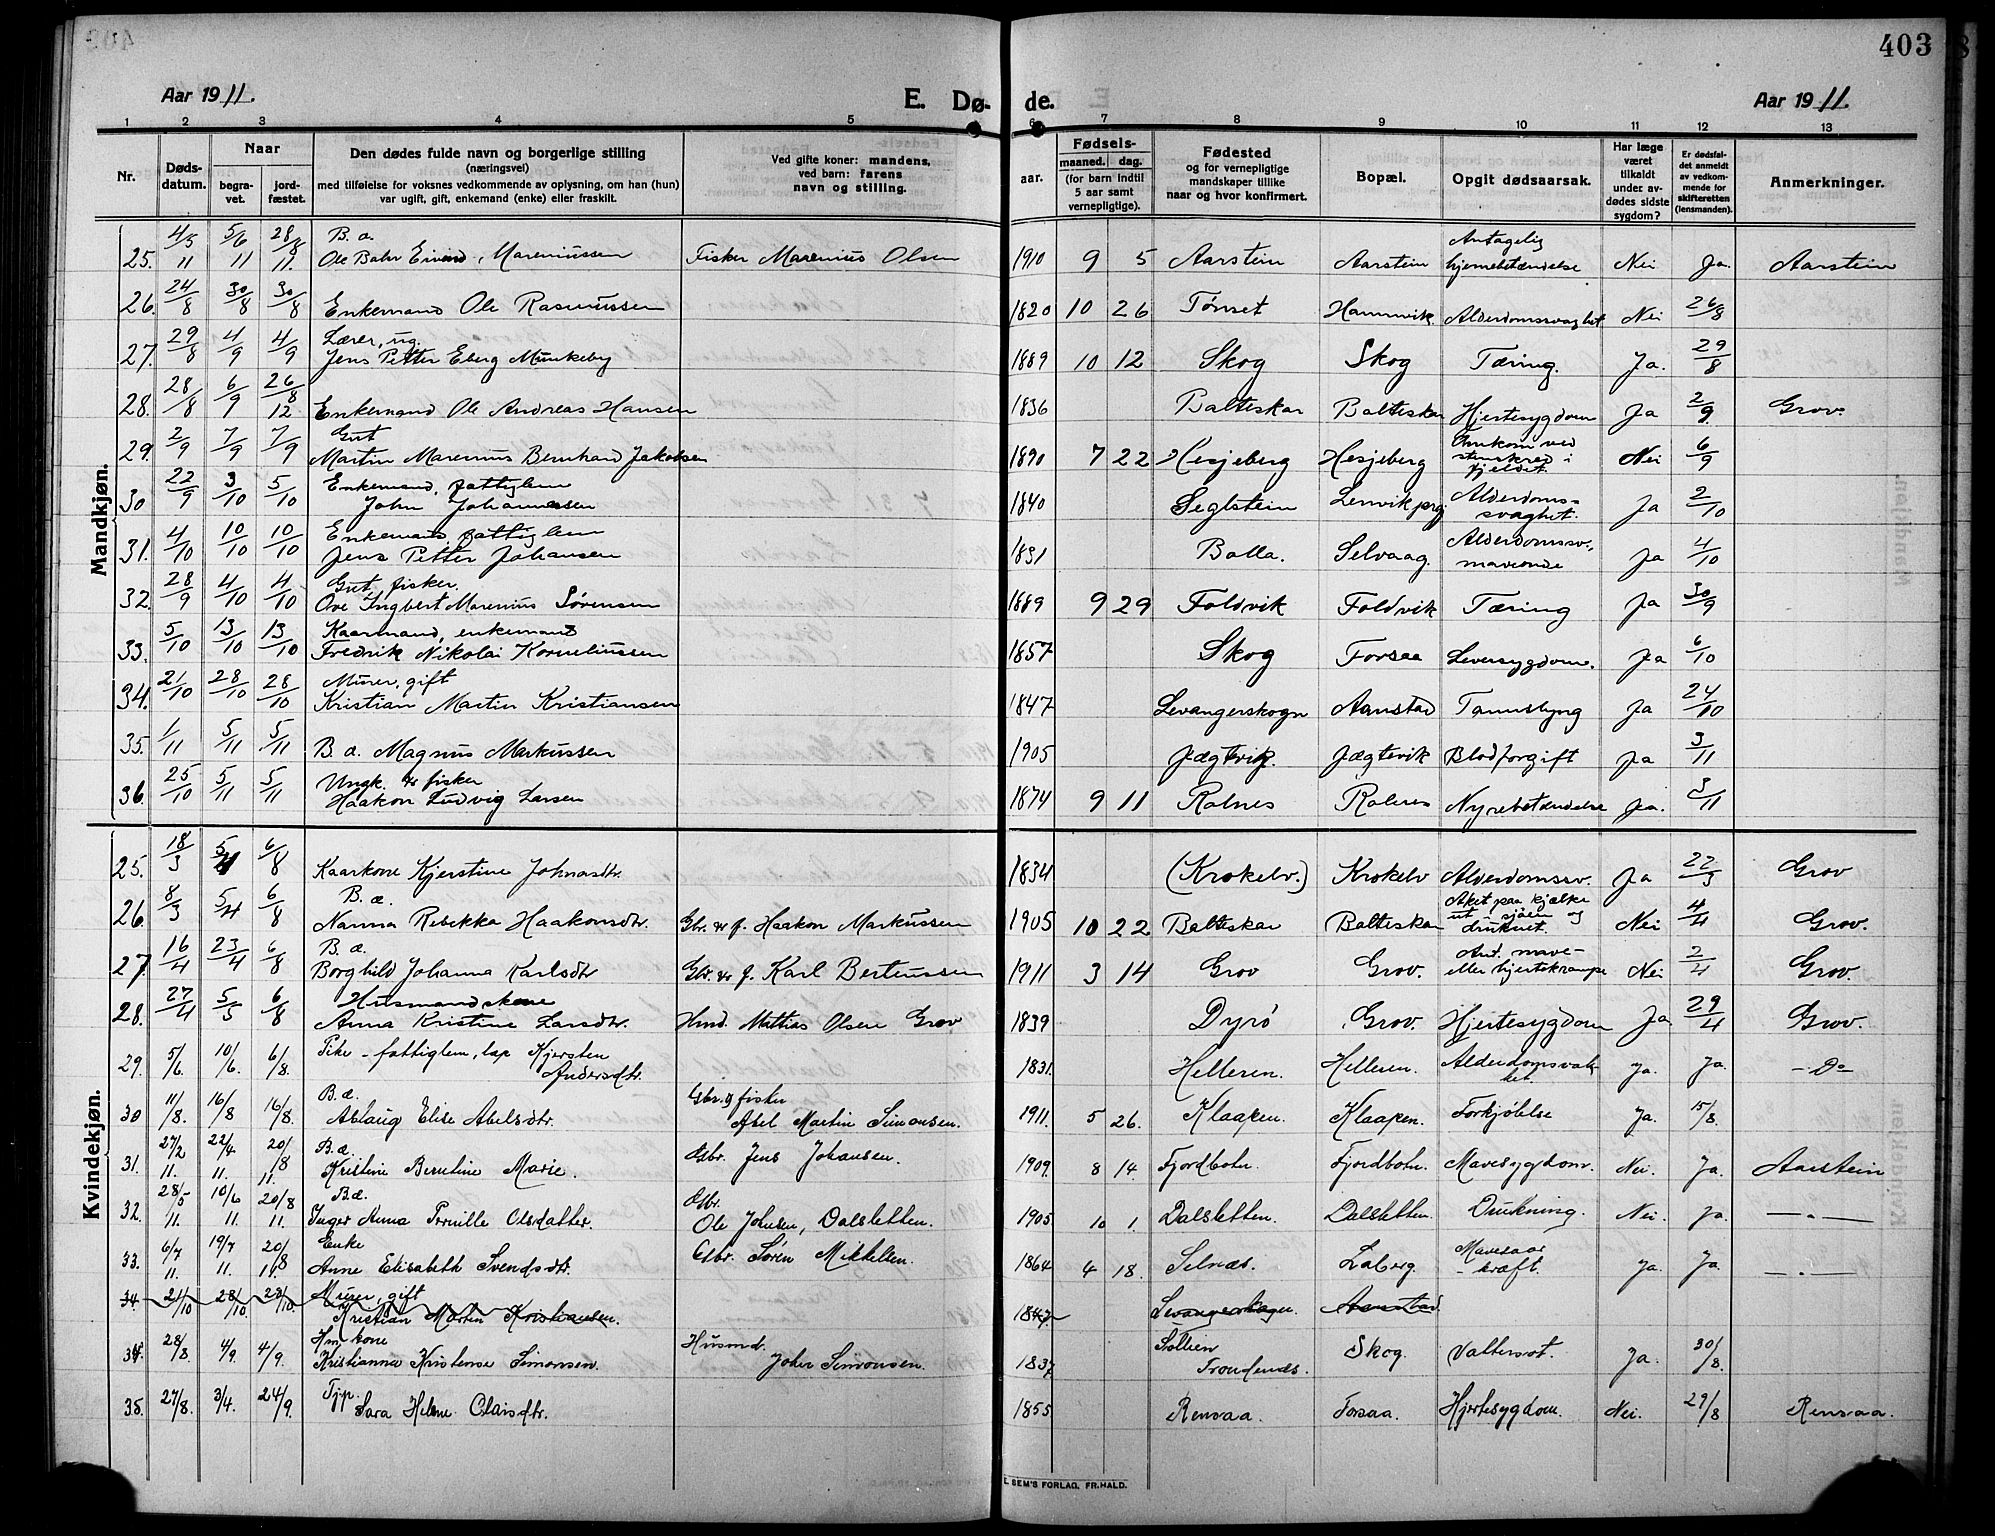 403
Aar 1911. E. Dø- de. Aar 1911.
1 2 3 4 5 6 7 8 9 10 11 12 13
Nr. Døds-datum. Naar begra-vet. jord-fæstet. Den dødes fulde navn og borgerlige stilling (næringsvei) med tilføielse for voksnes vedkommende av oplysning, om han (hun) var ugift, gift, enkemand (enke) eller fraskilt. Ved gifte koner: mandens, ved barn: farens navn og stilling. Fødsels- aar. maaned. dag. (for barn indtil 5 aar samt vernepligtige). Fødested og for vernepligtige mandskaper tillike naar og hvor konfirmert. Bopæl. Opgit dødsaarsak. Har læge været tilkaldt under av-dødes sidste sygdom? Er dødsfal-det anmeldt av vedkom-mende for skifteretten (lensmanden). Anmerkninger.
Mandkjøn.
25. 4/5 11 5/6 11 28/8 11. B. a. Ole Bahr Eivind, Mareniussen Fisker Marenius Olsen 1910 9 5 Aarstein Aarstein Antagelig hjernebetændelse Nei Ja. Aarstein
26. 24/8 30/8 30/8 Enkemand Ole Rasmussen 1820 10 26 Tønset Hamnvik. Alderdomssvaghet Nei 26/8
27. 29/8 4/9 4/9 Lærer, ug. Jens Petter Eberg Munkeby 1889 10 12 Skog Skog Tæring. Ja. 29/8
28. 28/8 6/9 26/8 12. Enkemand Ole Andreas Hansen 1836 Balteskar Balteskar Hjertesygdom Ja 2/9. Grov.
29. 2/9 7/9 7/9 Gut Martin Marenius Bernhard Jakobsen 1890 7 22 Hesjeberg Hesjeberg Omkom ved stenskred i fjeldet. Nei 6/9
30 22/9 3/10 5/10 Enkemand, fattiglem John Johannessen 1840 Seglstein Lenvik prgj Alderdoms-svaghet. Ja 2/10
31. 4/10 10/10 10/10 Enkemand, fattiglem Jens Petter Johansen 1831 Balla. Selvaag. Alderdomssv., maveonde Ja 4/10
32. 28/9 4/10 4/10 Gut, fisker. Ove Ingbert Marenius Sørensen 1889 9 29 Foldvik Foldvik Tæring Ja 30/9
33. 5/10 13/10 13/10 Kaarmand, enkemand Fredrik Nikolai Korneliussen 1857 Skog Forsaa Leversygdom. Ja 6/10
34. 21/10 28/10 28/10 Murer, gift Kristian Martin Kristiansen 1847 Levangerskogn Aanstad Ja 24/10
35. 1/11 5/11 5/11 B. a. Magnus Markussen 1905 Jægtvik. Jægtevik Blodforgift Ja 3/11
36. 25/10 5/11 5/11 Ungk. & fisker Haakon Ludvig Larsen 1874 9 11 Rolnes Rolnes Nyrebetændelse Ja. 3/11
Kvindekjøn.
25. 18/3 5/4 6/8 Kaarkone Kjerstine Johnasdtr. 1834 (Krokelv.) Krokelv Alderdomssv. Ja 22/3 Grov
26. 8/3 5/4 6/8 B. æ. Nanna Rebekka Haakonsdtr. Gbr. & f. Haakon Markussen 1905 10 22 Balteskar Balteskar Aket paa kjælke ut i sjøen og druknet. Nei 4/4 Grov.
27. 16/4 23/4 6/8 B. æ. Borghild Johanna Karlsdtr Gbr. & f. Karl Berteussen 1911 3 14 Grov Grov. Ant. mave- eller hjertekrampe Nei 2/4 Grov.
28. 27/4 5/5 6/8 Husmandskone Anna Kristine Larsdtr. Hmd. Mathias Olsen Grov 1839 Dyrø Grov. Hjertesygdom Ja 29/4 Grov.
29. 5/6. 10/6. 6/8. Pike - fattiglem, lap Kjersten Andersdtr. 1831. Helleren. Helleren. Alderdomsvak-het. Ja. Ja. - Do -
30 11/8. 16/8 16/8. B. æ. Aslaug Elise Abelsdtr. Gbr. og fisker Abel Martin Simonsen. 1911. 5 26. Klaapen. Klaapen. Forkjølelse Ja. 15/8.
31. 27/2 11. 22/4 11. 20/8 11. B. æ. Kristine Berntine Marie. Gbr. Jens Johansen. 1909. 8 14. Fjordbotn. Fjordbotn. Mavesygdom. Nei. Ja. Aarstein
32. 28/5 11. 10/6 11. 20/8 11. B. æ. Inger Anna Pernille Olsdatter. Gbr. Ole Johnsen, Dalsletten. 1905. 10 1. Dalsletten. Dalsletten. Drukning. Nei. Ja. — " —
33. 6/7 11. 19/7 11. 20/8 11. Enke Anne Elisabeth Svendsdtr. Gbr. Søren Mikkelsen. 1864 4 18. Selnæs. Laberg. Mavesaar - kræft. Ja. Ja. — " —
34. 21/10 28/10 28/10. Murer, gift Kristian Martin Kristiansen. 1847 Levangerskogn. Aanstad.
34. 28/8. 4/9. 4/9. Hm. kone Kristianna Kristense Simonsen. Husmd. Johan Simonsen. 1837 Sollien Trondenæs. Skog. Vattersot. Ja. 30/8.
35. 27/8. 3/4. 24/9. Tjp. Sara Helene Olaisdtr. 1855 Rensaa. Forsaa. Hjertesygdom. Nei. 29/8 Rensaa.
E. SEM'S FORLAG, FR.HALD.